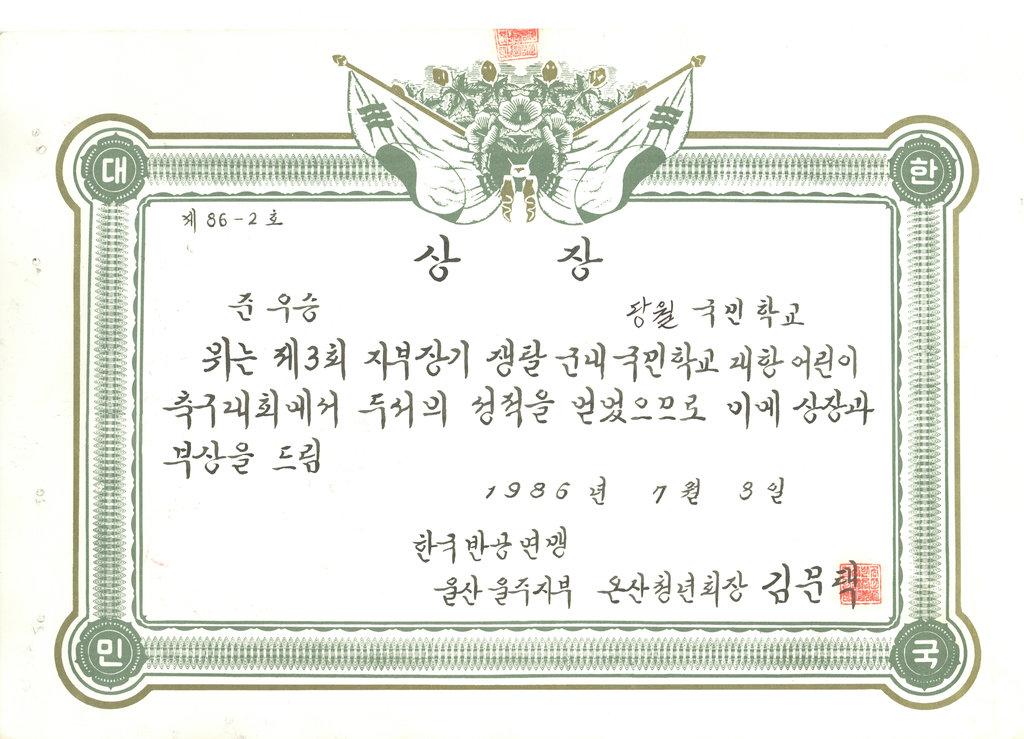 대 한
제 86-2 호
상 장
준 우승
당월 국민학교
위는 제3회 지부장기 쟁탈 군내 국민학교 대항 어린이
축구대회에서 두서의 성적을 얻었으므로 이에 상장과
부상을 드림
1986년 7월 3일
한국반공연맹
울산 울주지부 온산청년회장 김문택
민 국